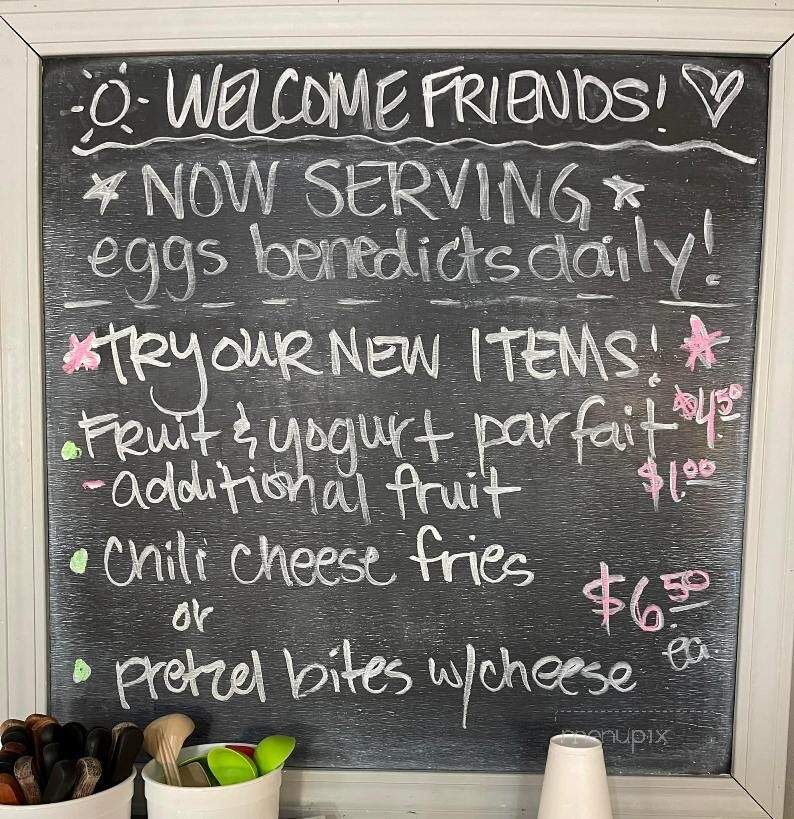 WELCOME FRIENDS!
NOW SERVING
eggs benedicts daily!
TRY OUR NEW ITEMS!
Fruit & yogurt parfait $4.50
- additional fruit $1.00
Chili cheese fries
or
$6.50 ea.
pretzel bites w/cheese
menupix